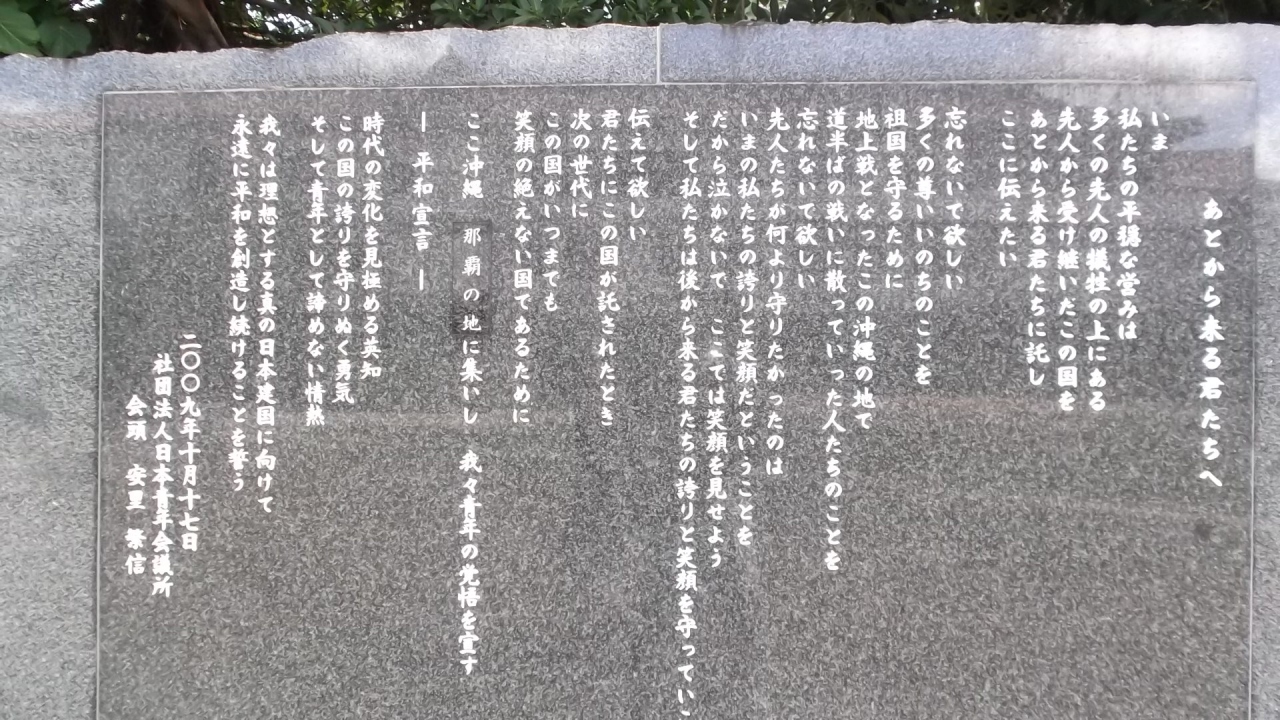 あとから来る君たちへ
いま
私たちの平穏な営みは
多くの先人の犠牲の上にある
先人から受け継いだこの国を
あとから来る君たちに託し
ここに伝えたい
忘れないで欲しい
多くの尊いいのちのことを
祖国を守るために
地上戦となったこの沖縄の地で
道半ばの戦いに散っていった人たちのことを
忘れないで欲しい
先人たちが何より守りたかったのは
いまの私たちの誇りと笑顔だということを
だから泣かないで ここでは笑顔を見せよう
そして私たちは後から来る君たちの誇りと笑顔を守ってい
伝えて欲しい
君たちにこの国が託されたとき
次の世代に
この国がいつまでも
笑顔の絶えない国であるために
ここ沖縄 那覇の地に集いし 我々青年の覚悟を宣す
― 平和宣言 ―
時代の変化を見極める英知
この国の誇りを守りぬく勇気
そして青年として諦めない情熱
我々は理想とする真の日本建国に向けて
永遠に平和を創造し続けることを誓う
二〇〇九年十月十七日
社団法人日本青年会議所
会頭 安里 繁信